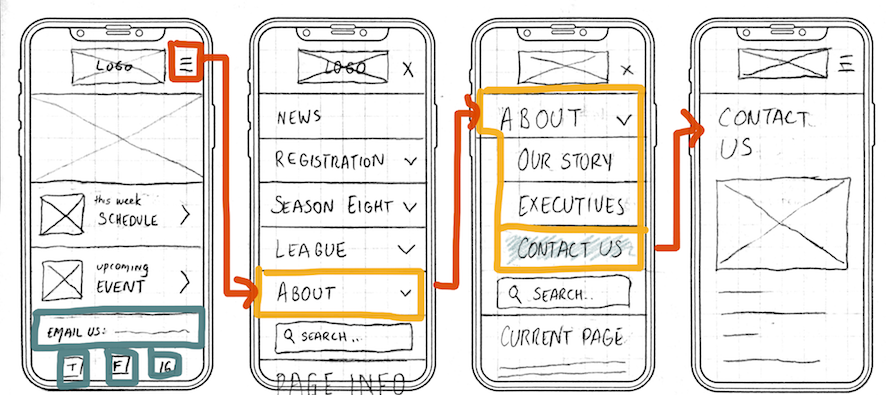 LOGO
this week
SCHEDULE
upcoming
EVENT
EMAIL US:
T
F
IG
LOGO
X
NEWS
REGISTRATION
SEASON EIGHT
LEAGUE
ABOUT
SEARCH..
PAGE INFO
X
ABOUT
OUR STORY
EXECUTIVES
CONTACT US
SEARCH..
CURRENT PAGE
CONTACT
US